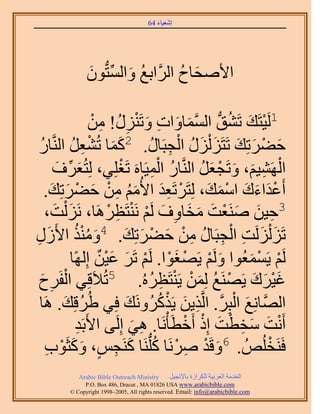 إشعياء 64
الأصحَاحُ الرَّابعُ وَالسِّتُّونَ
1لَيْتَكَ تَشُقُّ السَّمَاوَاتِ وَتَنْزِلُ! مِنْ
حَضْرَتِكَ تَتَزَلْزَلُ الْجِبَالُ. 2كَمَا تُشْعِلُ النَّارُ
الْهَشِيمَ، وَتَجْعَلُ النَّارُ الْمِيَاهَ تَغْلِي، لِتُعَرِّفَ
أَعْدَاءَكَ اسْمَكَ، لِتَرْتَعِدَ الأُمَمُ مِنْ حَضْرَتِكَ.
3حِينَ صَنَعْتَ مَخَاوِفَ لَمْ نَنْتَظِرْهَا، نَزَلْتَ،
تَزَلْزَلَتِ الْجِبَالُ مِنْ حَضْرَتِكَ. 4وَمُنْذُ الأَزَلِ
لَمْ يَسْمَعُوا وَلَمْ يَصْغَوْا. لَمْ تَرَ عَيْنٌ إِلهًا
غَيْرَكَ يَصْنَعُ لِمَنْ يَنْتَظِرُهُ. 5تُلاَقِي الْفَرِحَ
الصَّانِعَ الْبِرَّ. الَّذِينَ يَذْكُرُونَكَ فِي طُرُقِكَ. هَا
أَنْتَ سَخِطْتَ إِذْ أَخْطَأْنَا. هِيَ إِلَى الأَبَدِ
فَنَخْلُصُ. 6وَقَدْ صِرْنَا كُلُّنَا كَنَجِسٍ، وَكَثَوْبِ
Arabic Bible Outreach Ministry الخدمة العربية للكرازة بالإنجيل
P.O. Box 486, Dracut , MA 01826 USA www.arabicbible.com
Copyright 1998–2005, All rights reserved. Email: info@arabicbible.com ©